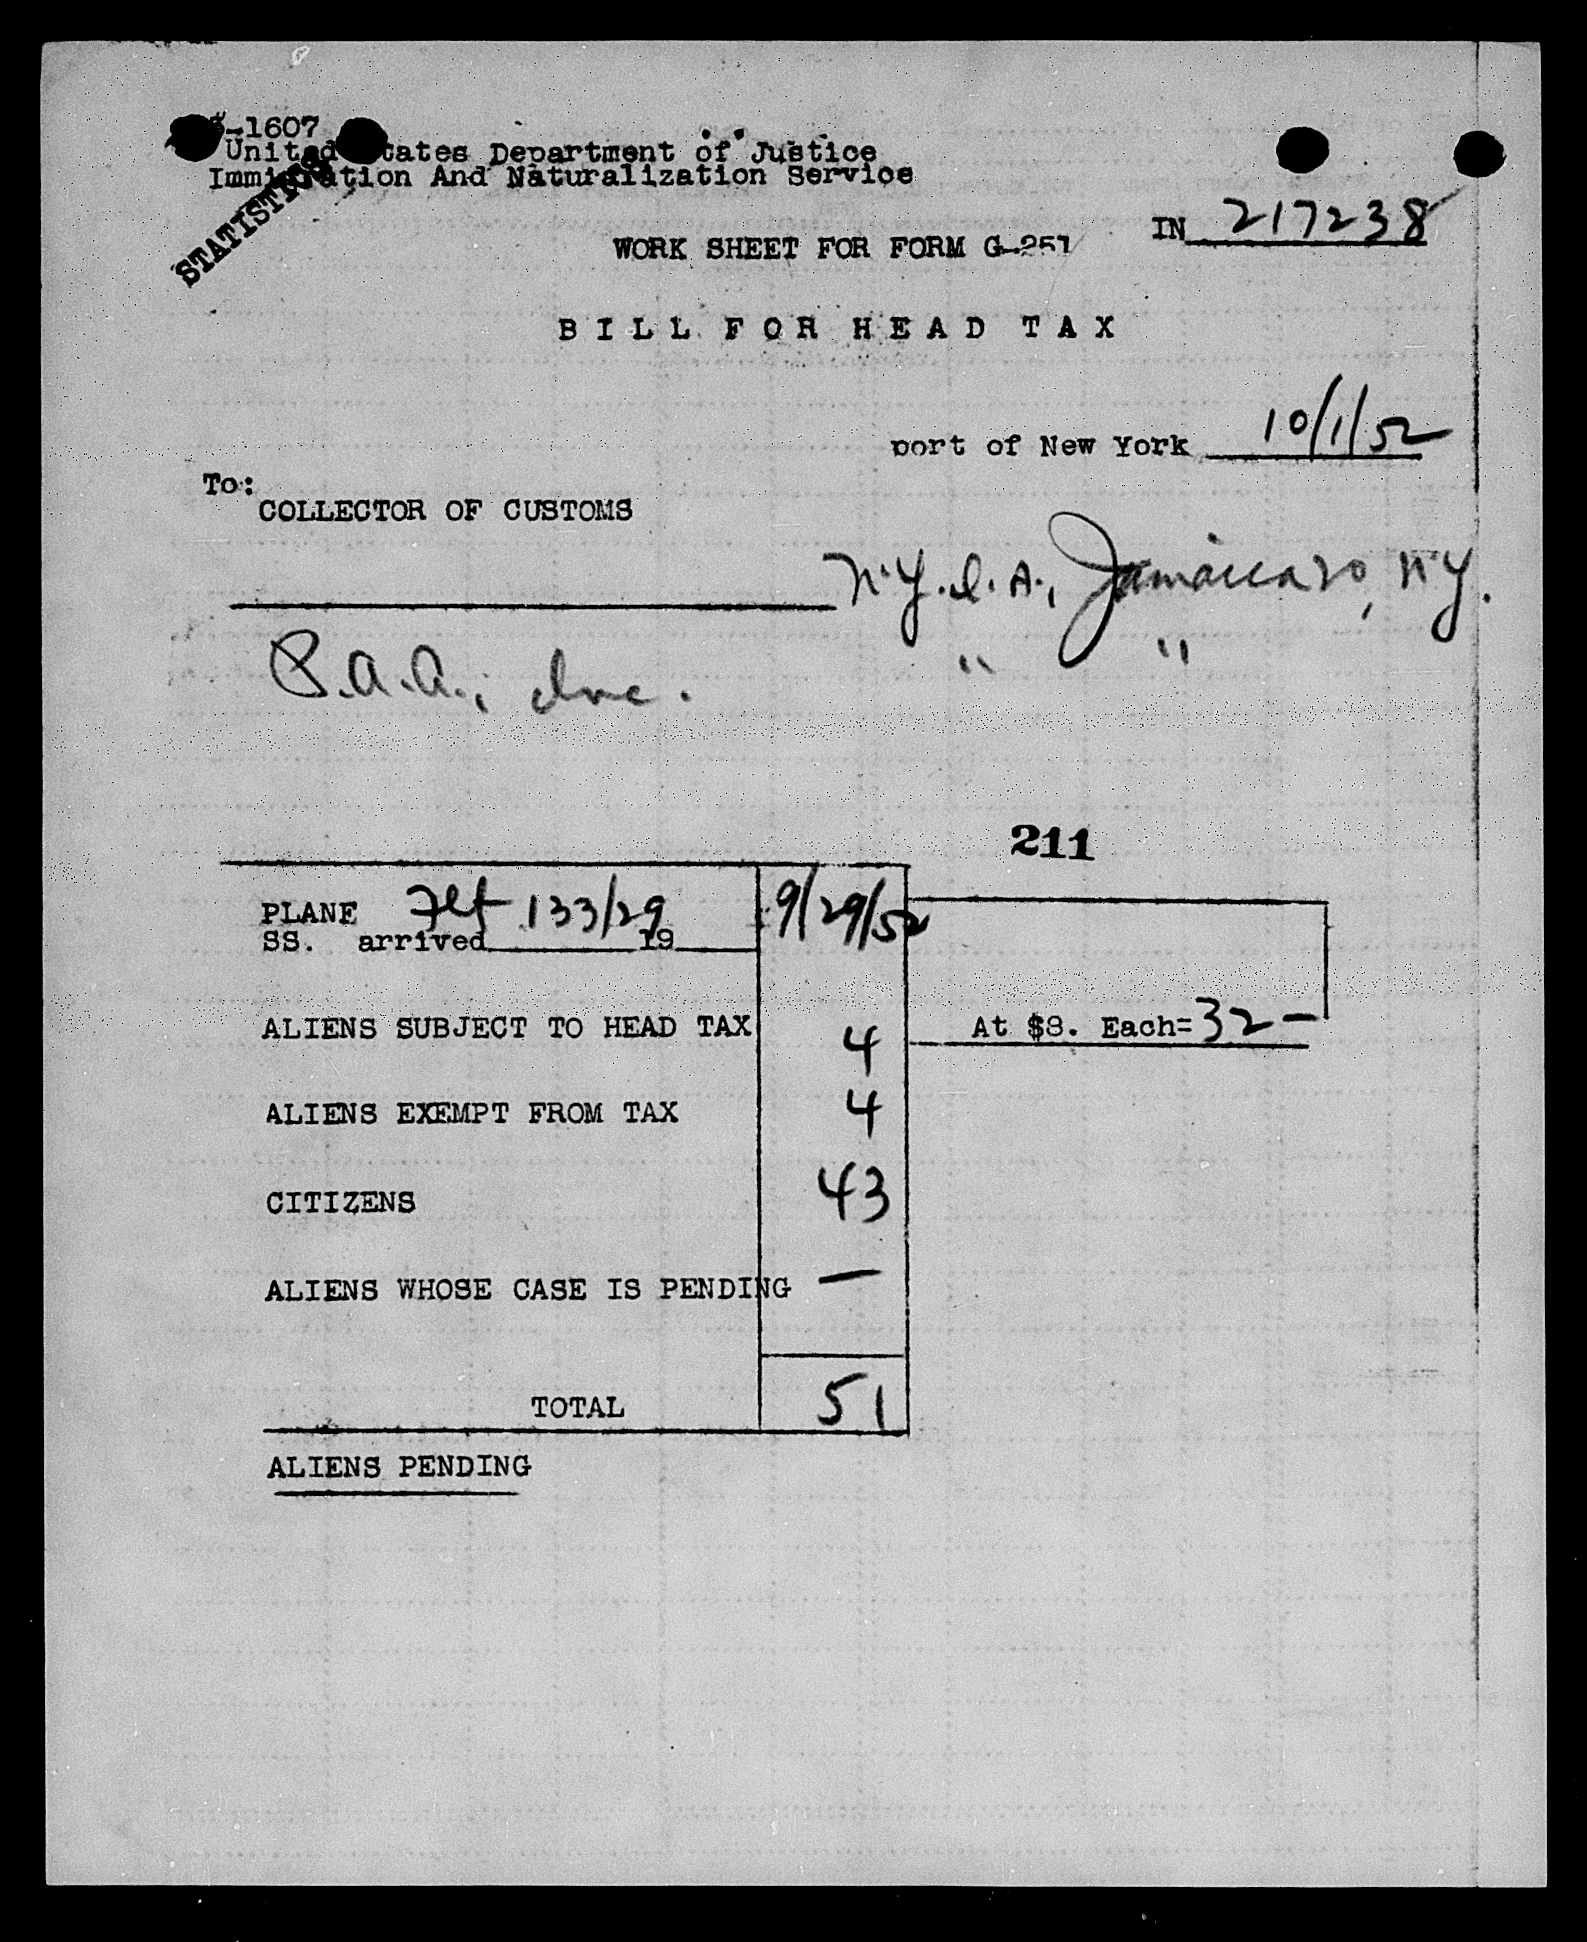 -1607
United States Department of Justice
Immigration And Naturalization Service
STATISTICS
IN 217238
WORK SHEET FOR FORM G-251
BILL FOR HEAD TAX
port of New York 10/1/52
To:
COLLECTOR OF CUSTOMS
N.Y.I.A., Jamaica 30, N.Y.
P.A.A., Inc. " "
211
PLANE Flt 133/29 9/29/52
SS. arrived 19
ALIENS SUBJECT TO HEAD TAX 4 At $8. Each= 32 —
ALIENS EXEMPT FROM TAX 4
CITIZENS 43
ALIENS WHOSE CASE IS PENDING —
TOTAL 51
ALIENS PENDING